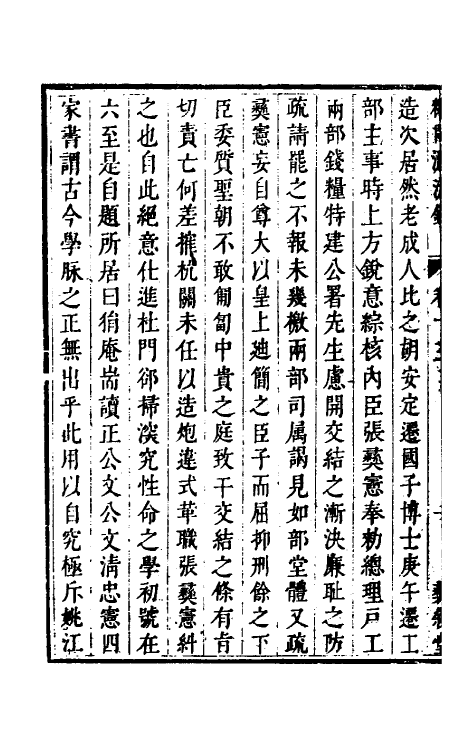 造次居然老成人比之胡安定遷國子博士庚午遷工
部主事時上方銳意綜核內臣張彝憲奉勅總理戸工
兩部錢糧特建公署先生慮開交結之漸決廉耻之防
疏請罷之不報未幾檄兩部司属謁見如部堂體又疏
彝憲妄自尊大以皇上廸簡之臣子而屈抑刑餘之下
臣委質聖朝不敢匍匐中貴之庭致干交結之條有㫖
切責亡何差摧杭關未任以造炮違式革職張彝憲糾
之也自此絕意仕進杜門郤掃淡究性命之學初號在
六至是自題所居曰㣪庵耑讀正公文公文清忠憲四
家書謂古今學脉之正無出乎此用以自究極斥姚江